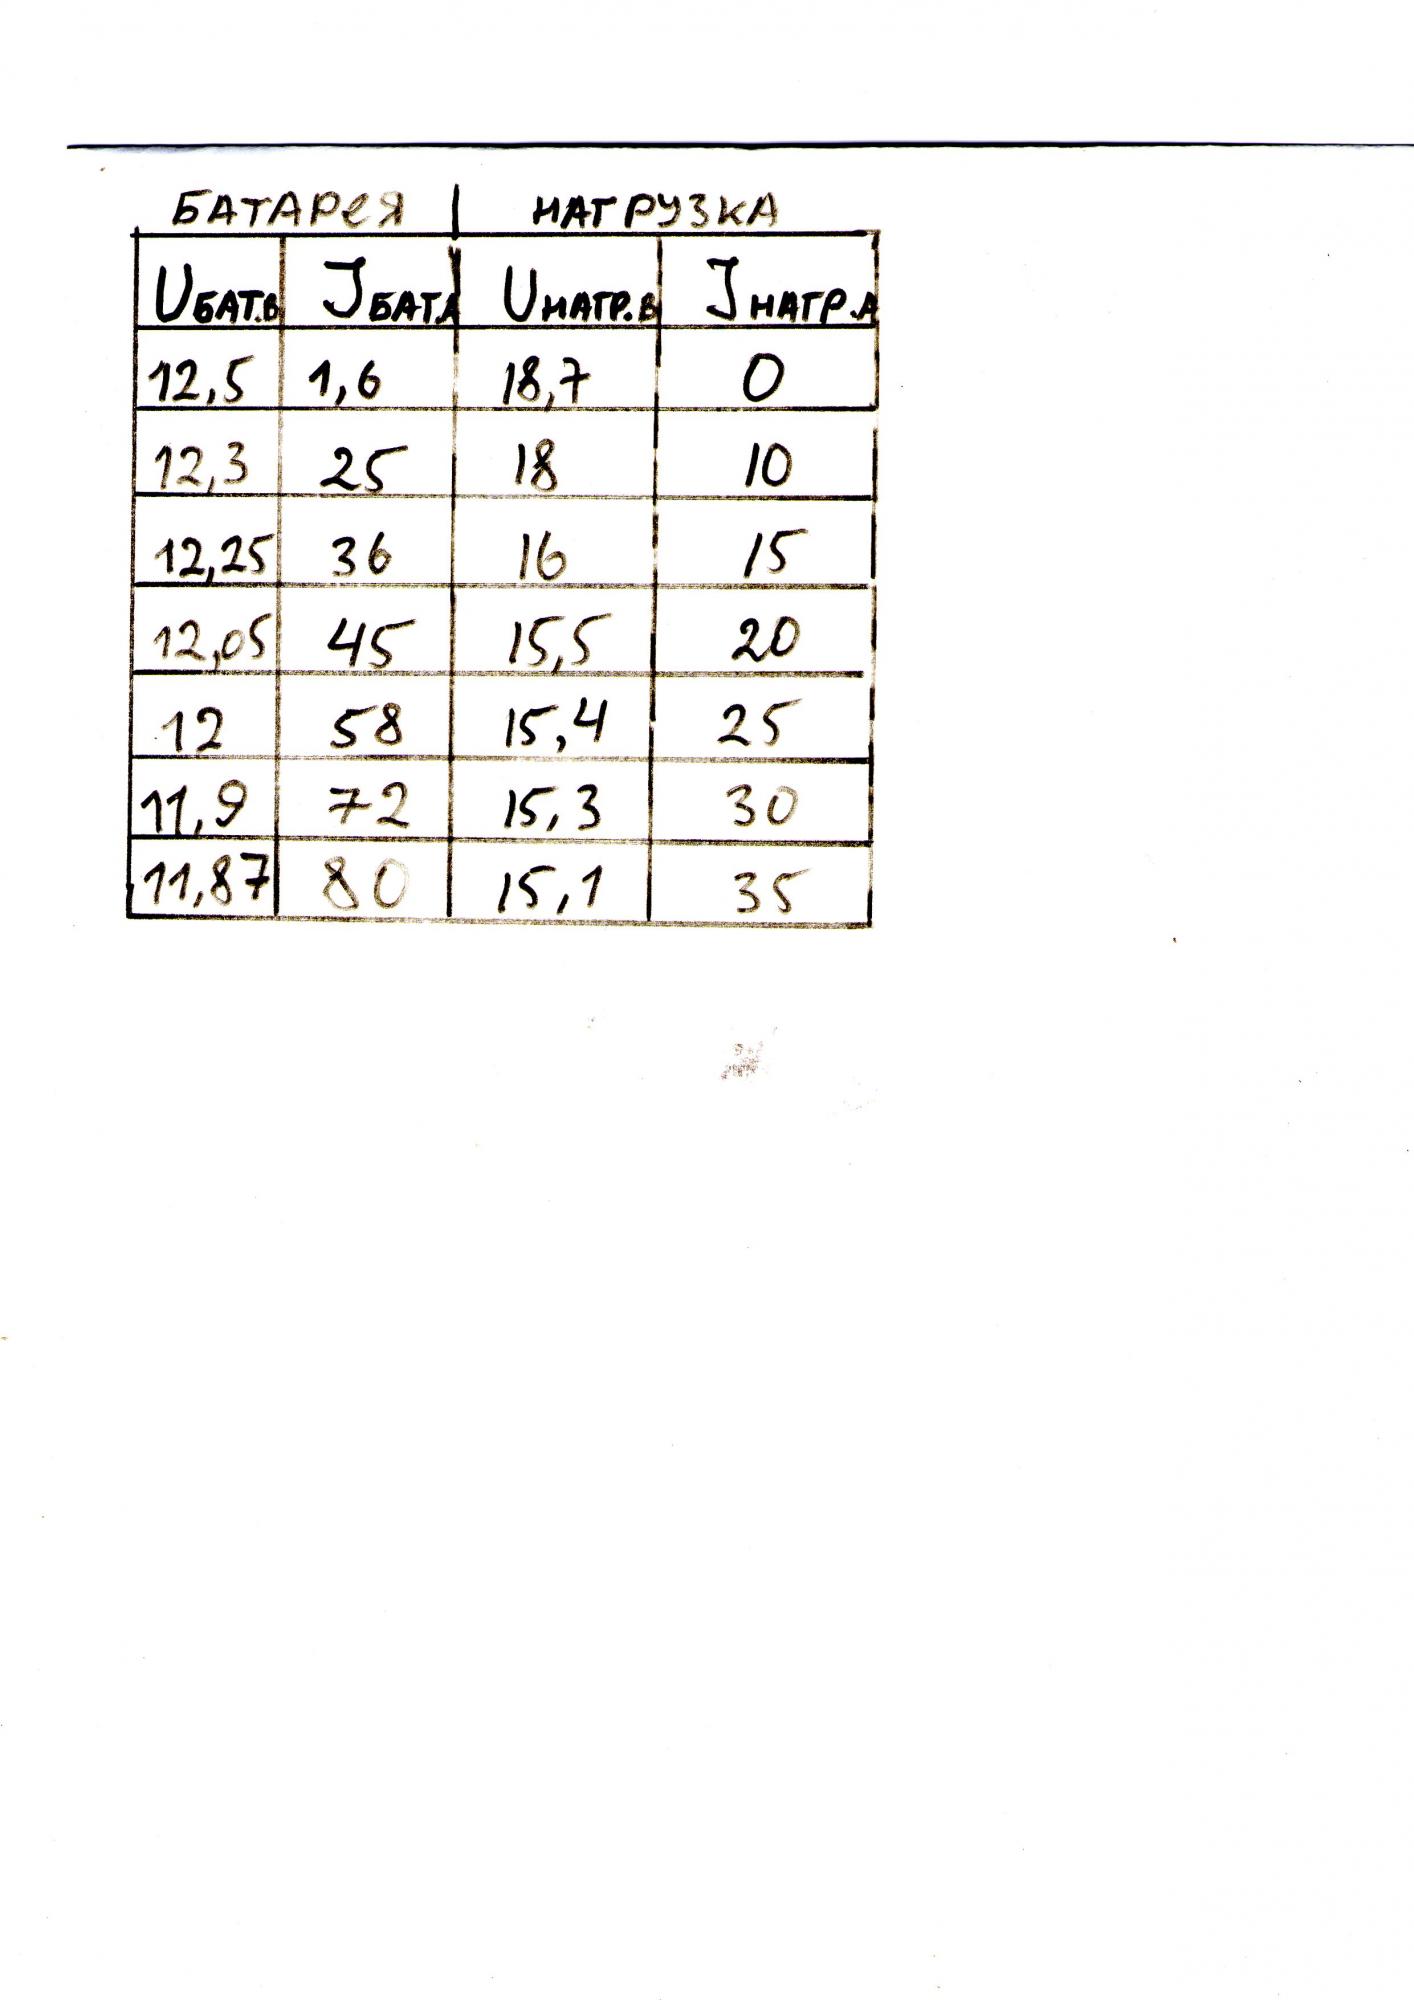 БАТАРЕЯ | НАГРУЗКА
UБАТ.В JБАТ.А UНАГР.В JНАГР.А
12,5 1,6 18,7 0
12,3 25 18 10
12,25 36 16 15
12,05 45 15,5 20
12 58 15,4 25
11,9 72 15,3 30
11,87 80 15,1 35